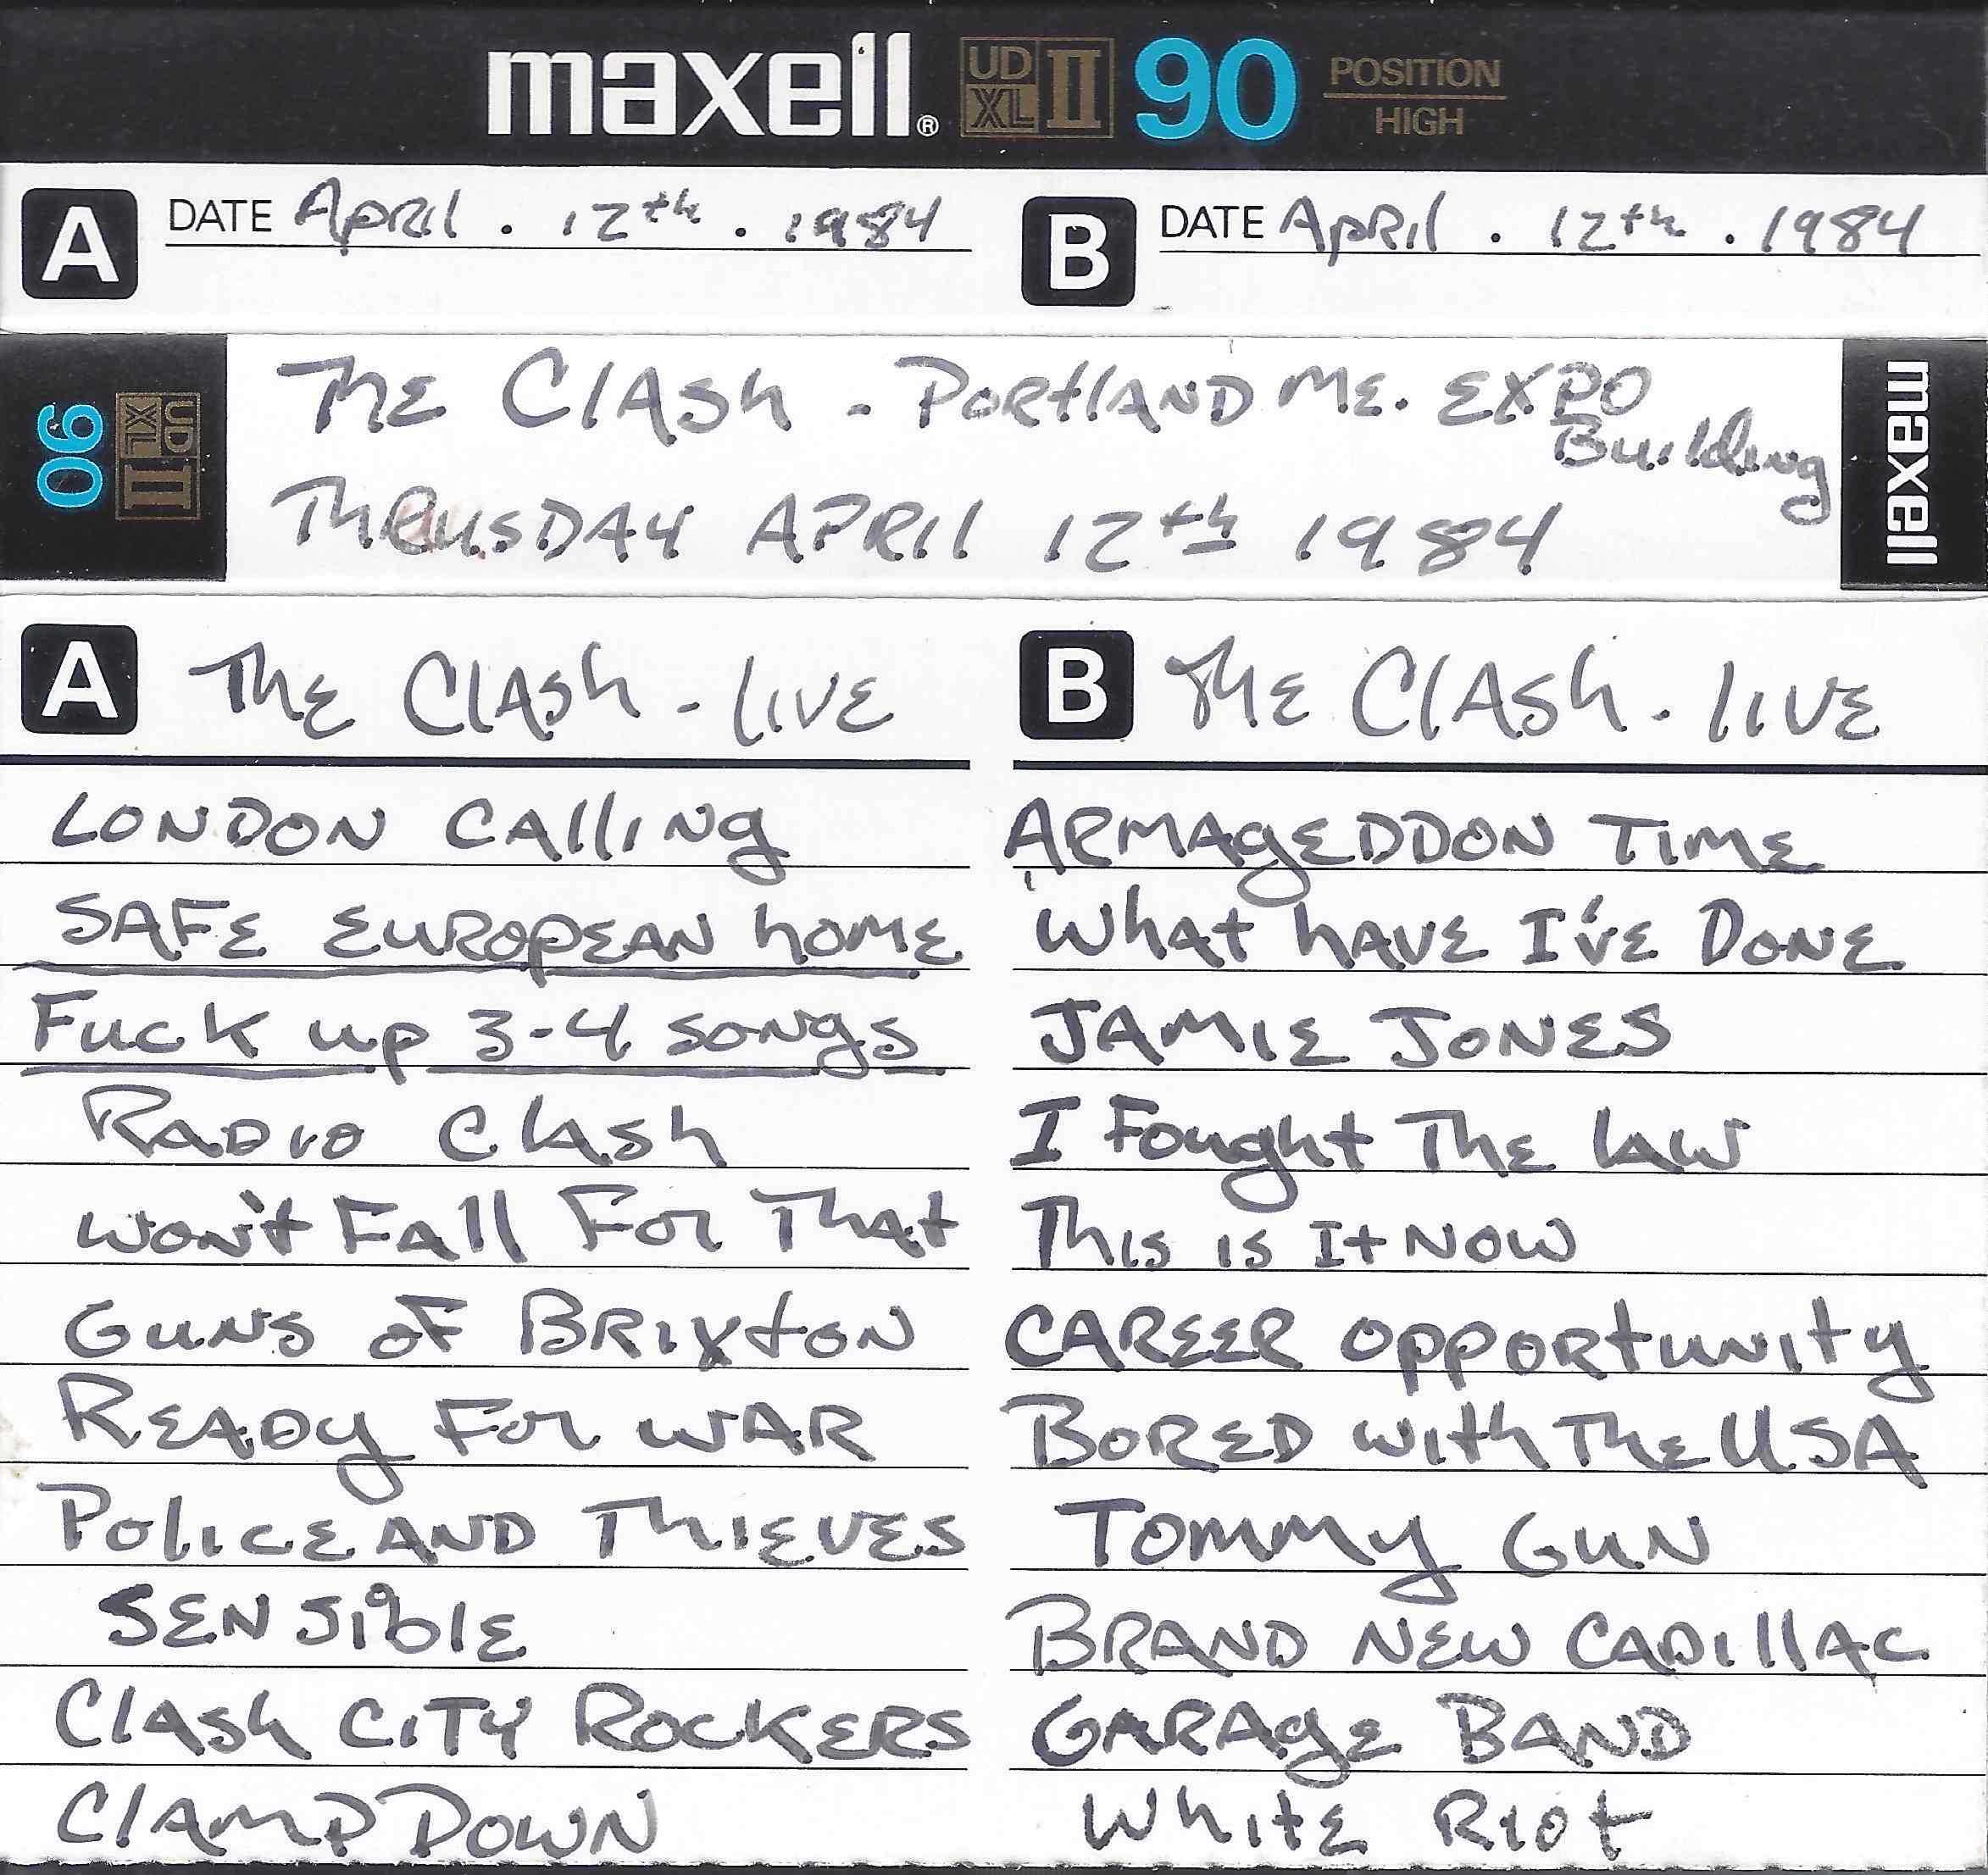 maxell® UD XL II 90 POSITION HIGH
A DATE April . 12th . 1984
B DATE April . 12th . 1984
90 UD XL II
The Clash - Portland Me. Expo Building
Thursday April 12th 1984
maxell
A The Clash - live
London Calling
Safe European home
Fuck up 3-4 songs
Radio Clash
Won't Fall For That
Guns of Brixton
Ready For War
Police and Thieves
Sensible
Clash City Rockers
Clamp Down
B The Clash - live
Armageddon Time
What have I've Done
Jamie Jones
I Fought The law
This is It Now
Career opportunity
Bored with The USA
Tommy Gun
Brand New Cadillac
Garage Band
White Riot